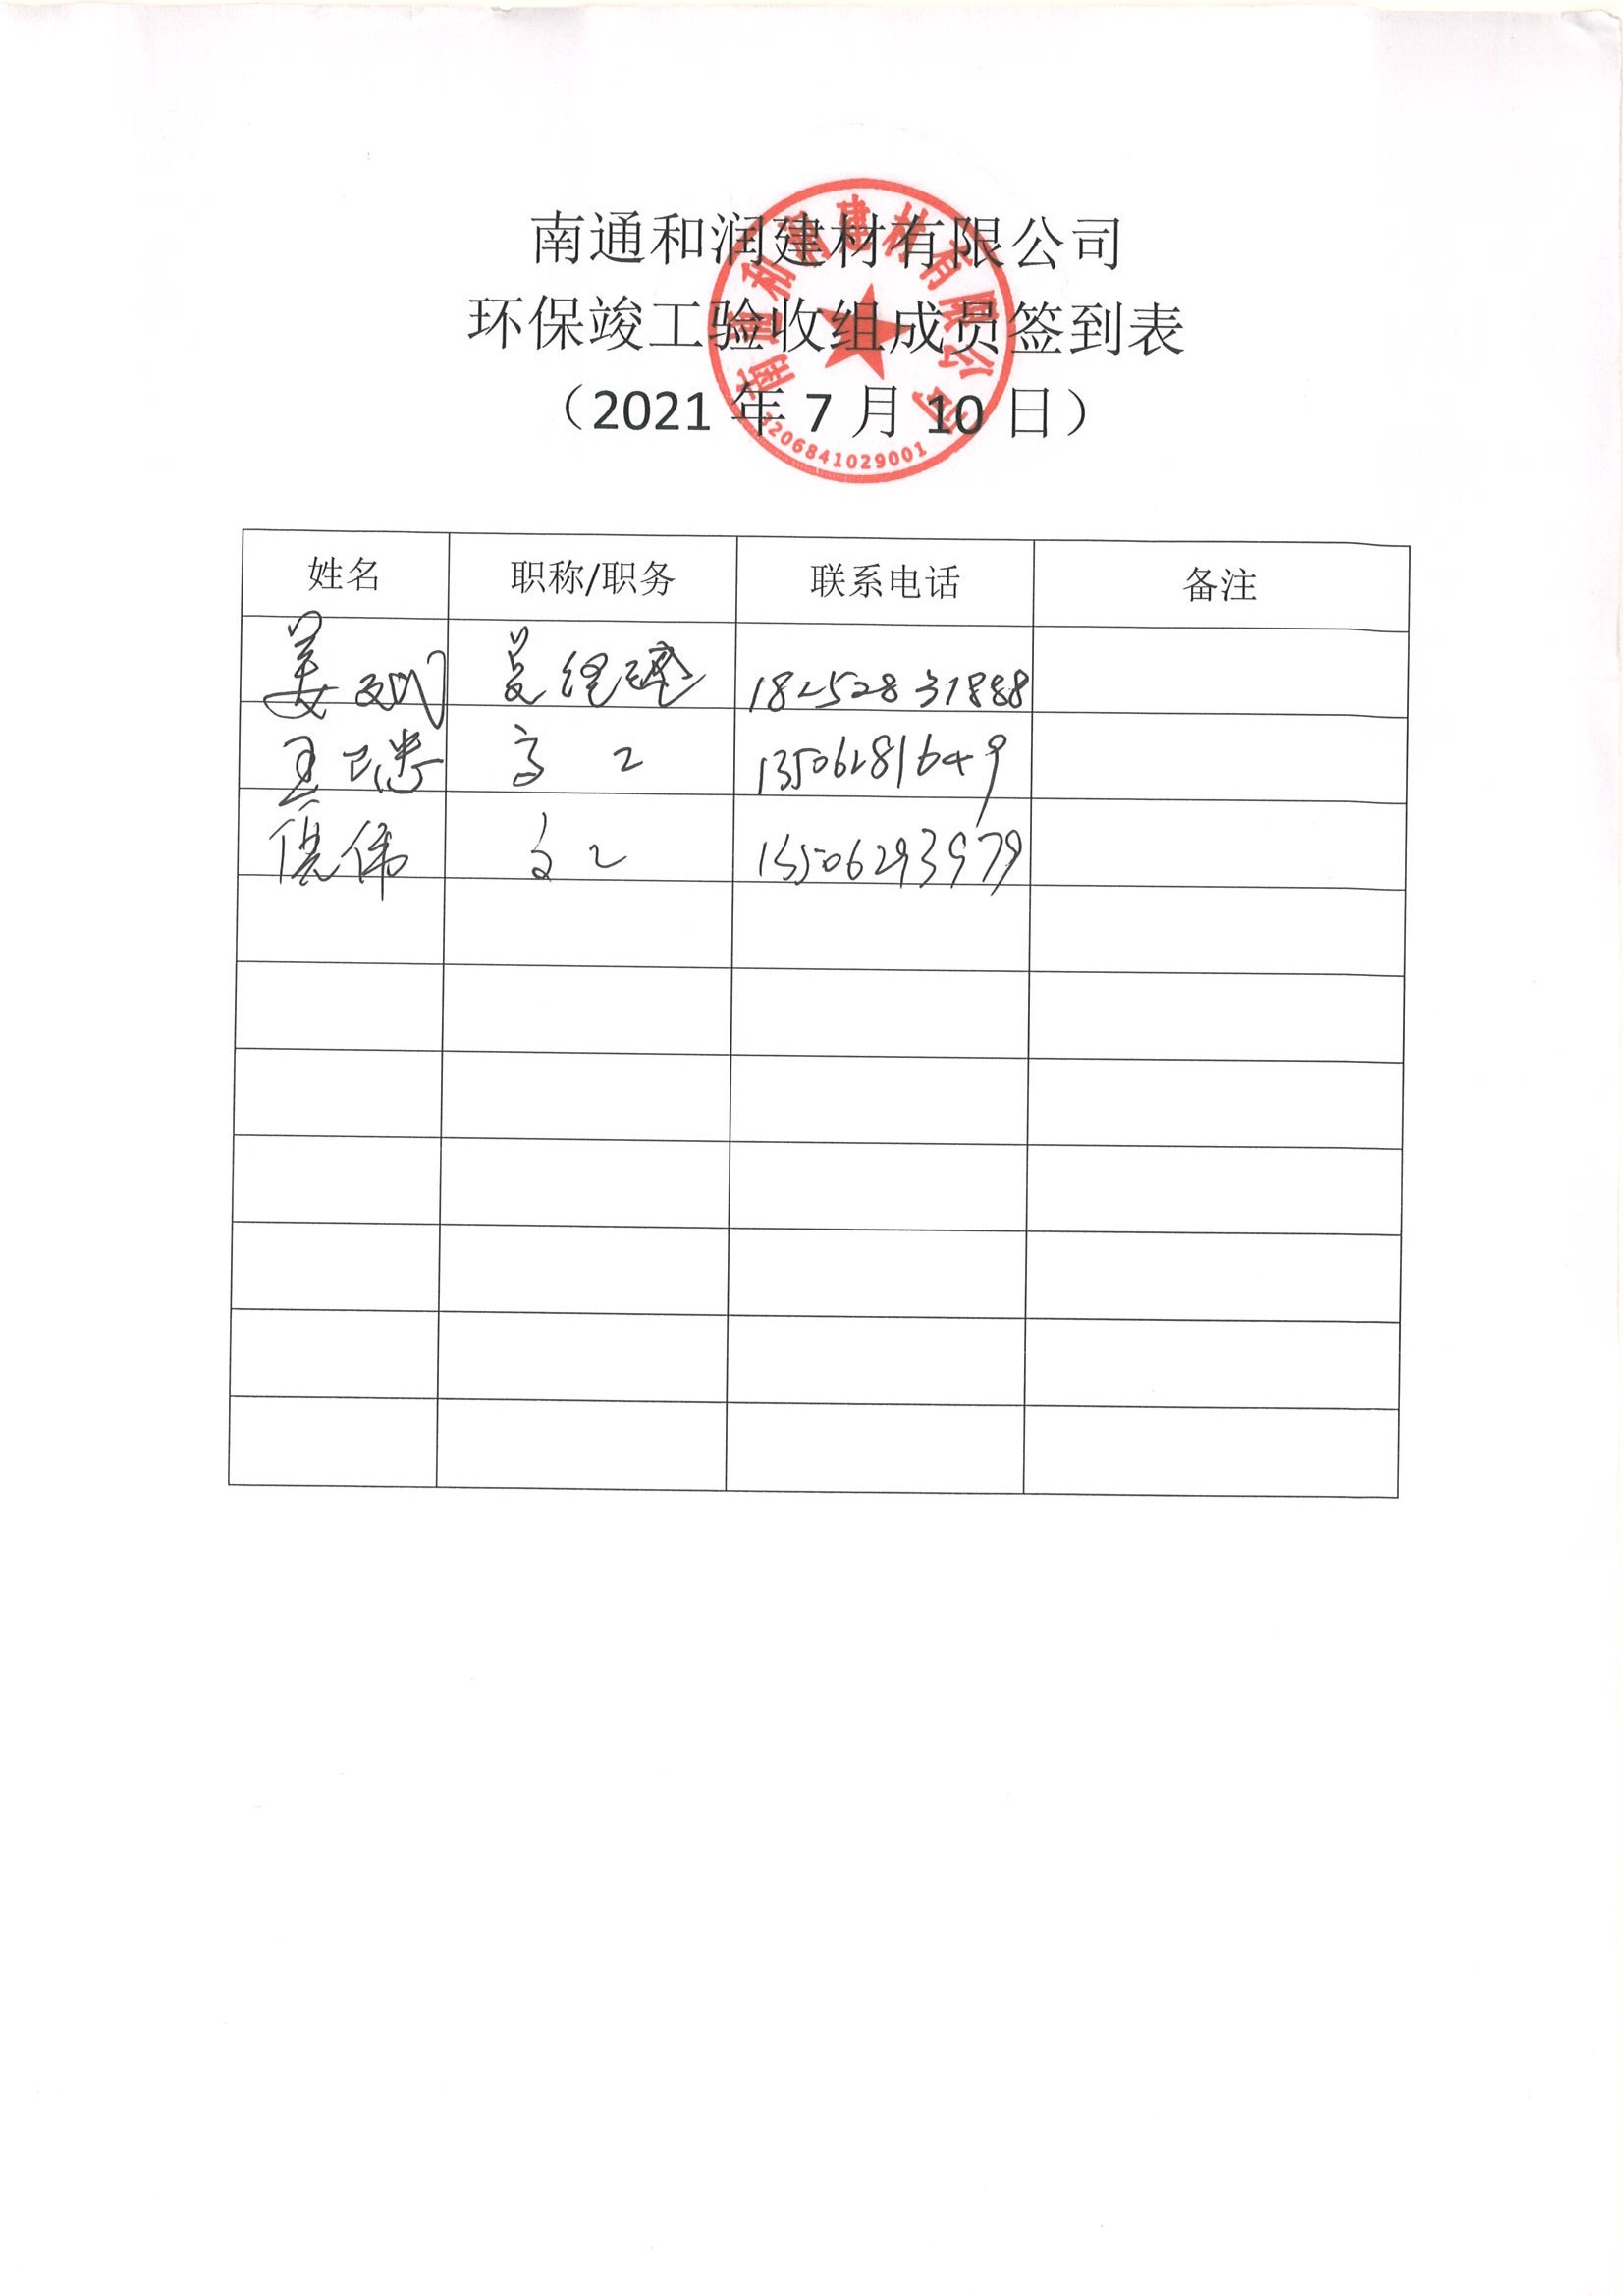 南通和润建材有限公司
环保竣工验收组成员签到表
（2021 年 7 月 10 日）
南通和润建材有限公司
3206841029001
姓名 职称/职务 联系电话 备注
姜 总经理 18252831888
王 高工 13506281649
伟 高工 13506293979